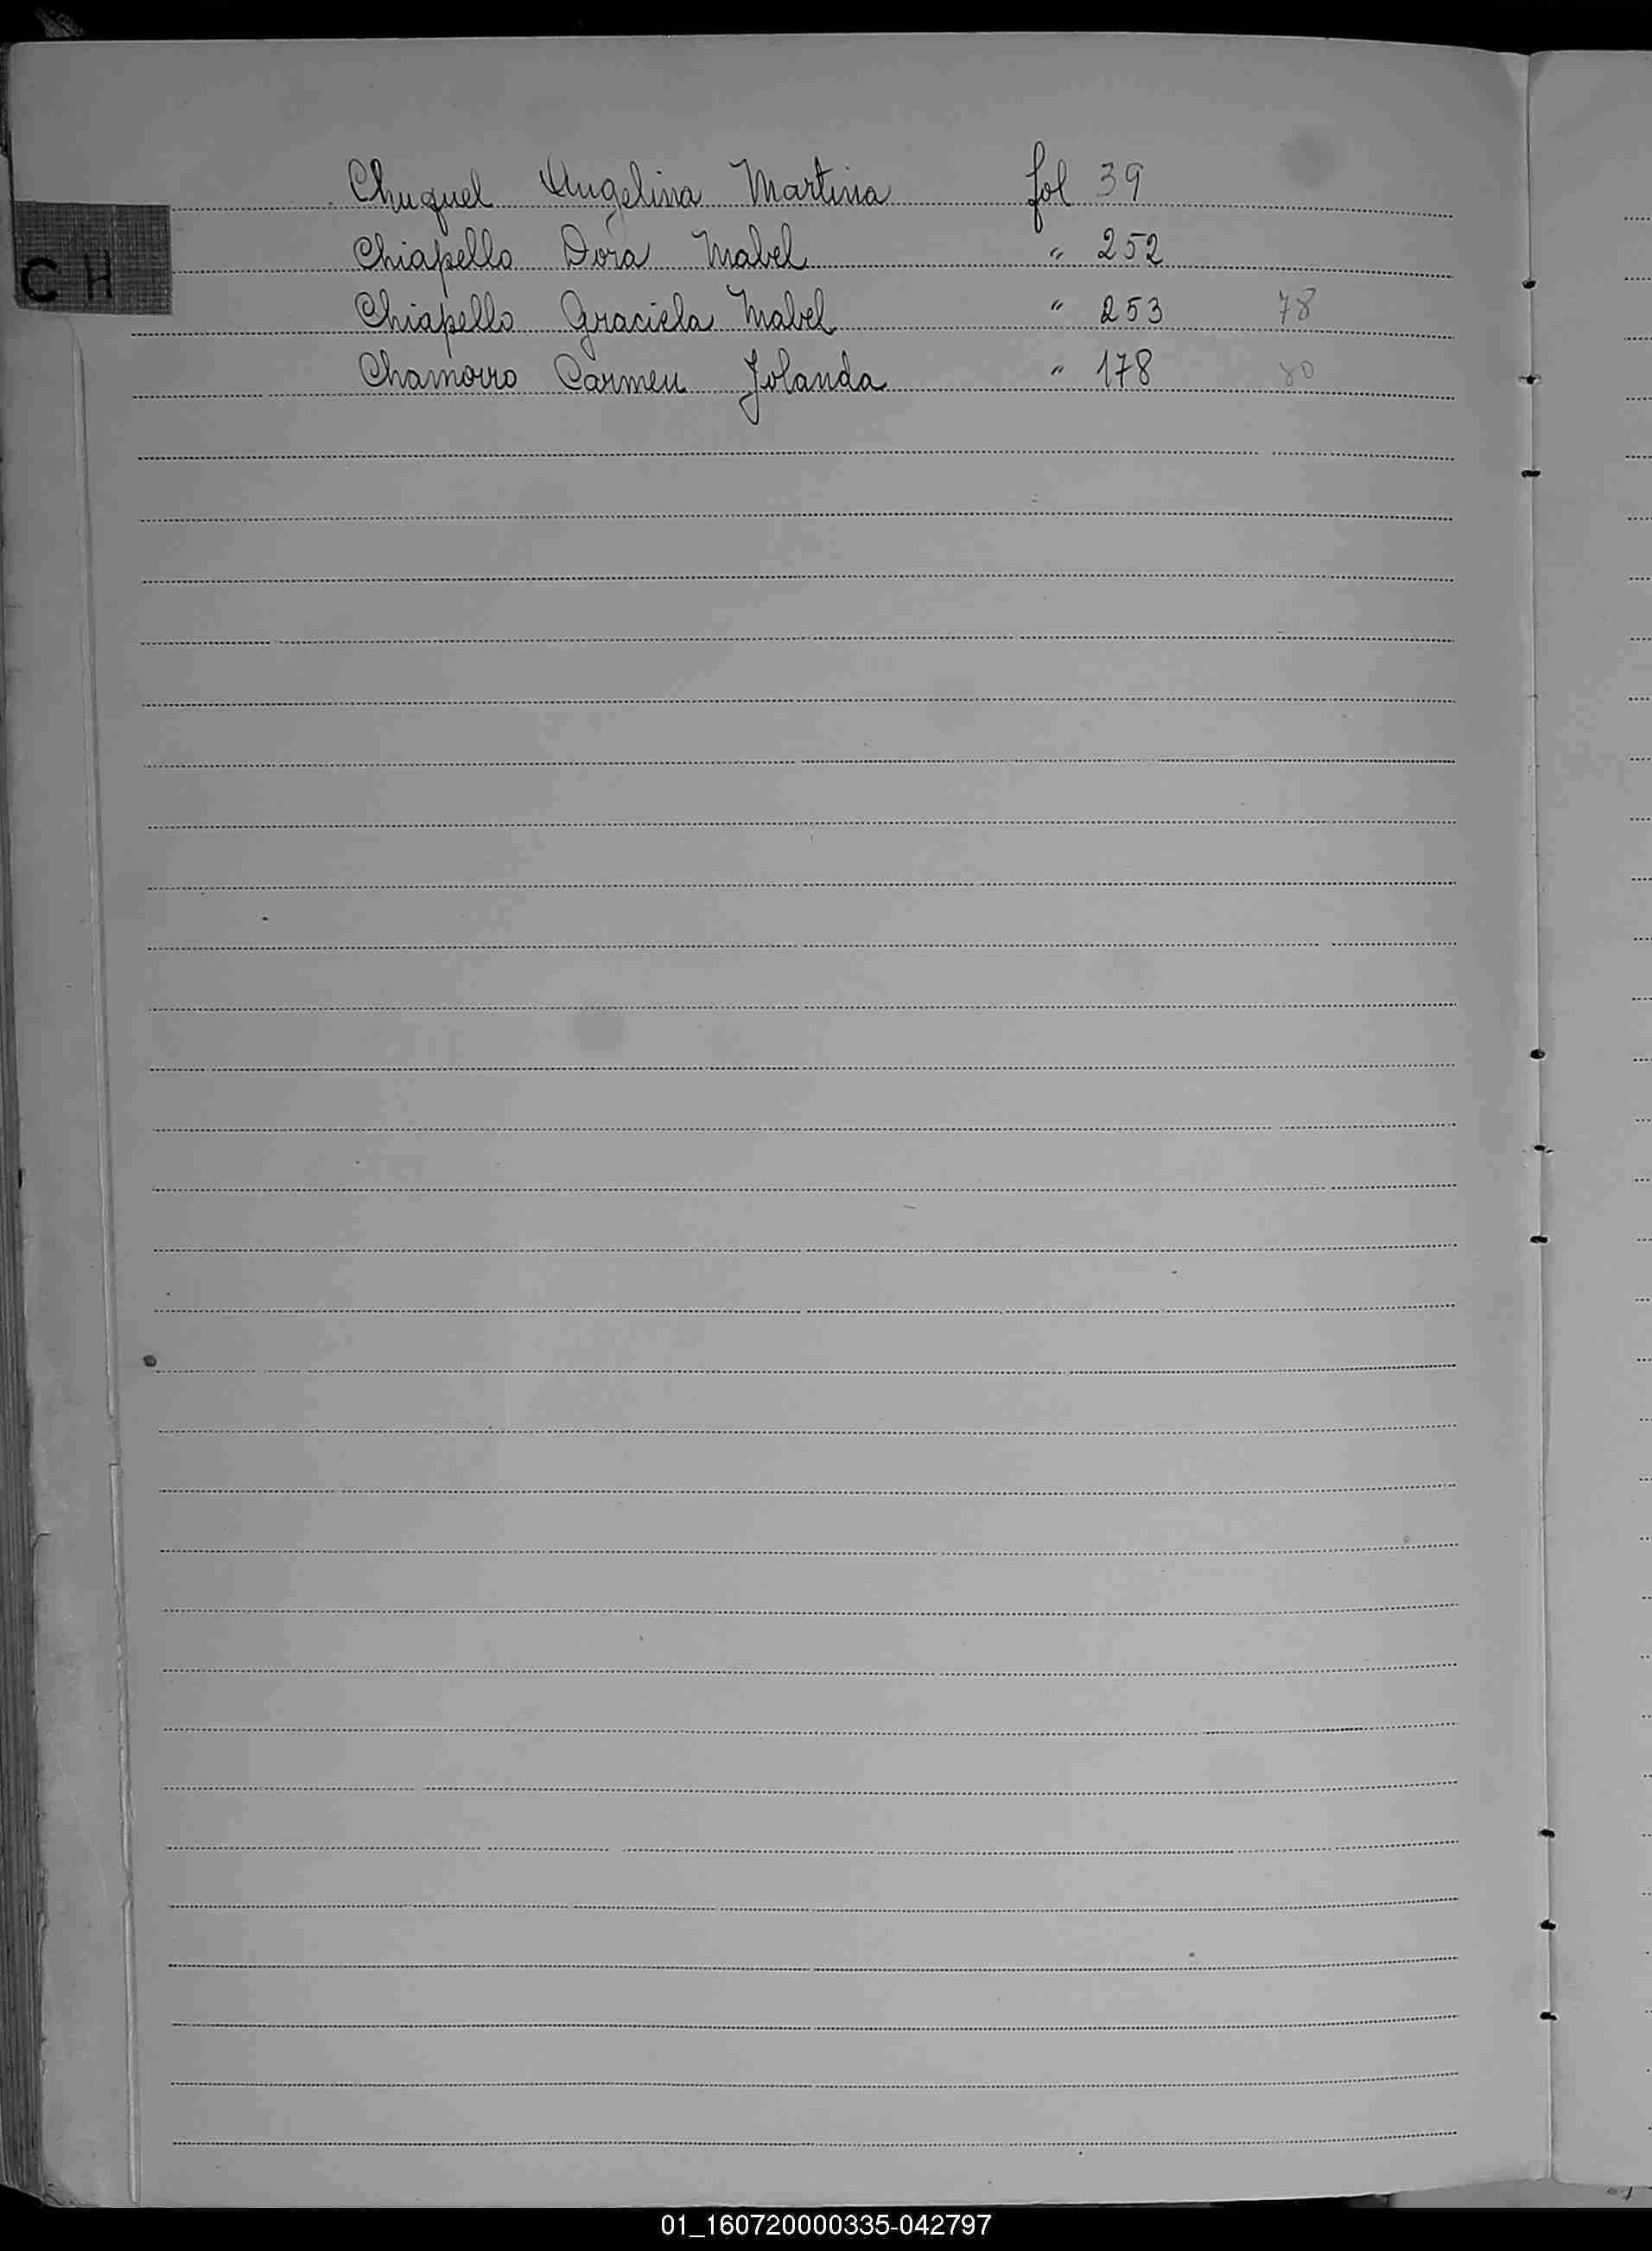 Chuquel Angelina Martina fol 39
CH
Chiapello Dora Mabel " 252
Chiapello Graciela Mabel " 253 78
Chamorro Carmen Jolanda " 178 80
01_160720000335-042797